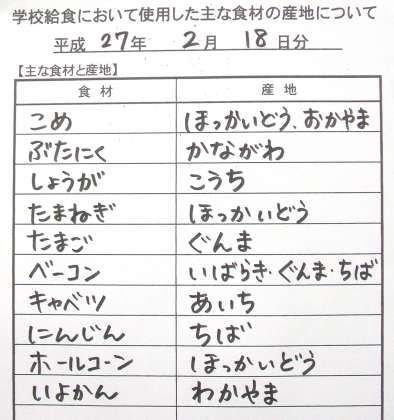 学校給食において使用した主な食材の産地について
平成 27年 2月 18日分
【主な食材と産地】
食材 産地
こめ ほっかいどう、おかやま
ぶたにく かながわ
しょうが こうち
たまねぎ ほっかいどう
たまご ぐんま
ベーコン いばらき・ぐんま・ちば
キャベツ あいち
にんじん ちば
ホールコーン ほっかいどう
いよかん わかやま